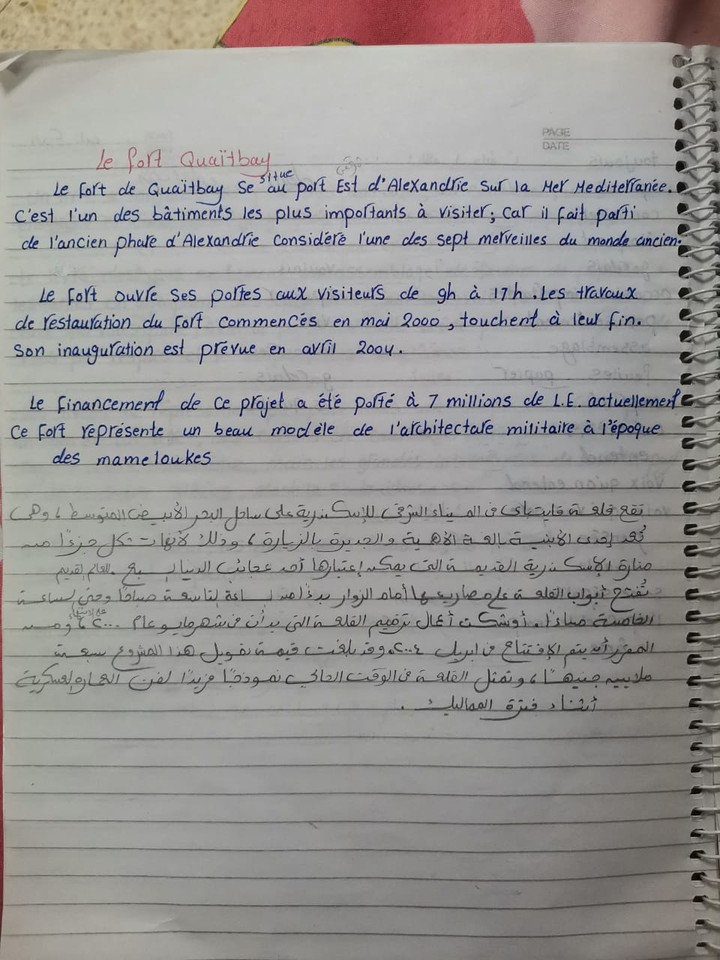 PAGE
DATE
Le fort Quaïtbay
situe
Le fort de Quaïtbay se au port Est d'Alexandrie sur la Mer Mediterranée.
C'est l'un des bâtiments les plus importants à visiter; car il fait parti
de l'ancien phare d'Alexandrie considéré l'une des sept merveilles du monde ancien.
Le fort ouvre ses portes aux visiteurs de 9h à 17h. Les travaux
de restauration du fort commencés en mai 2000, touchent à leur fin.
Son inauguration est prévue en avril 2004.
Le financement de ce projet a été porté à 7 millions de L.E. actuellement
Ce fort représente un beau modèle de l'architecture militaire à l'époque
des mameloukes
تقع قلعة قايتباى فى الميناء الشرقى للإسكندرية على ساحل البحر الأبيض المتوسط، وهى
تُعد إحدى الأبنية بالغة الأهمية والجديرة بالزيارة، وذلك لأنها تشكل جزءًا من
منارة الإسكندرية القديمة التى يمكن إعتبارها أحد عجائب الدنيا السبع. العالم القديم
تُفتح أبواب القلعة على مصاريعها أمام الزوار بدءًا من الساعة التاسعة صباحًا وحتى الساعة
الخامسة مساءًا. أوشكت أعمال ترميم القلعة التى بدأت فى شهر مايو عام ٢٠٠٠ ، ومن
المقرر أن يتم الإفتتاح فى ابريل ٢٠٠٤ وقد بلغت قيمة تمويل هذا المشروع سبعة
ملايين جنيهًا، وتمثل القلعة فى الوقت الحالى نموذجًا فريدًا لفن العمارة العسكرية
أثناء فترة المماليك.